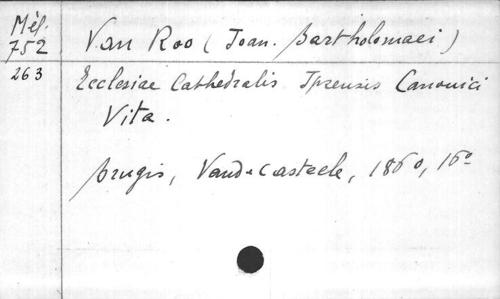 Mél.
752
Van Roo (Joan. Bartholomaei)
263
Ecclesiae Cathedralis Iprensis Canonici
Vita.
Brugis, Vandecasteele, 1860, 16°